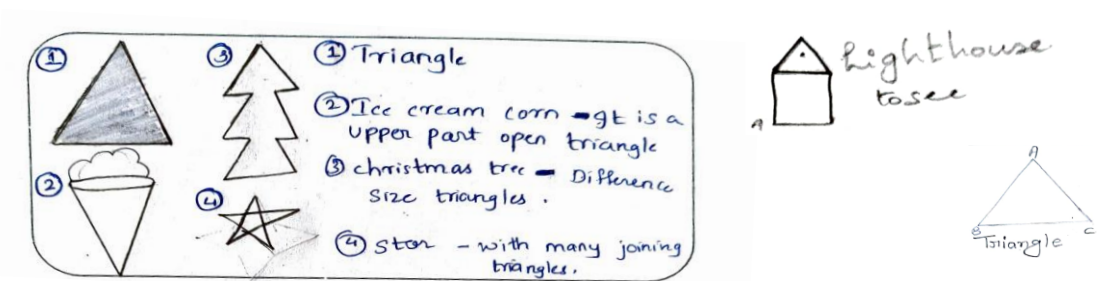 ① ③ ① Triangle
② Ice cream corn - It is a
upper part open triangle
② ③ christmas tree - Difference
size triangles.
④
④ Star - with many joining
triangles.
Lighthouse
to see
A
A
B C
Triangle